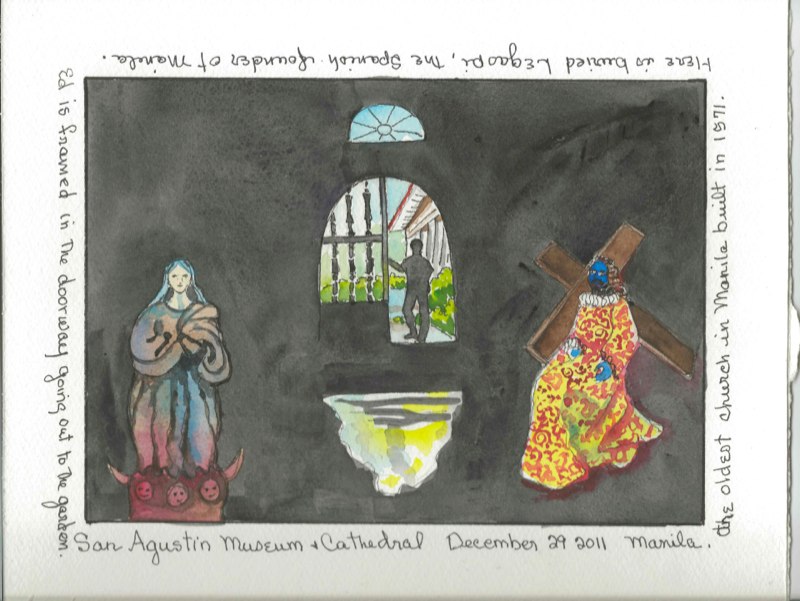 Here is buried Legaspi, the Spanish founder of Manila.
Ed is framed in the doorway going out to the garden.
San Agustin Museum + Cathedral December 29 2011 Manila.
the oldest church in Manila built in 1571.